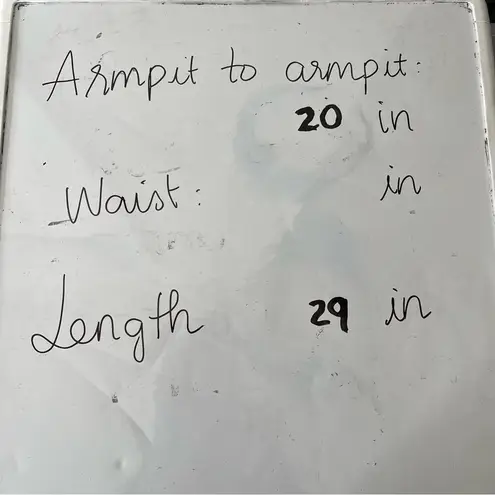 Armpit to armpit:
20 in
Waist: in
Length 29 in